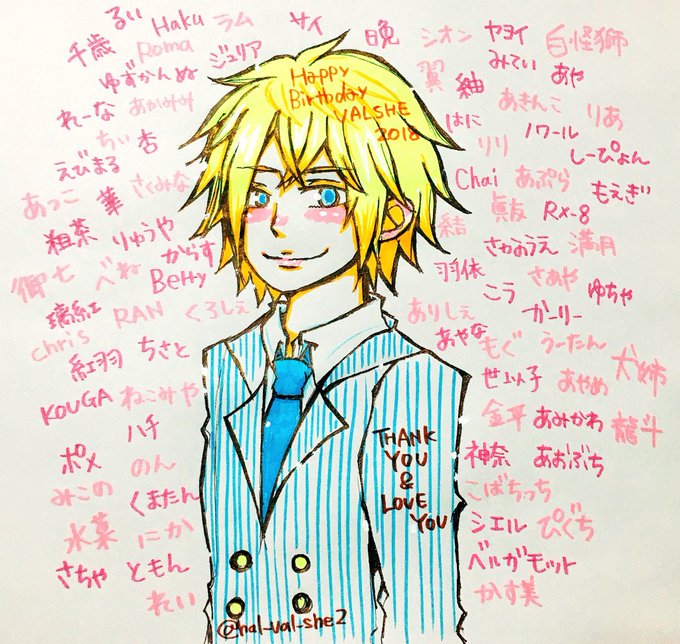 るい Haku ラム サイ 晩 シオン ヤヨイ 白怪獅
千歳 Roma ジュリア 翼 紬 みてい あや
ゆずかんぬ
れーな あかみみ はに あきんこ りあ
ちぃ 杏 リリ ノワール
えびまる しーぴょん
あっこ 華 さくみな Chai あぷら もえぎ
粗菜 りゅうや 結 眞友 RX-8
からす さわおうえ 満月
御七 べね Betty 羽依 さあや
璃紅 RAN くろしぇ ありしぇ こう かーりー ゆちゃ
chris あやな もぐ うーたん 犬姉
紅羽 ちさと 世以子 あやめ
KOUGA ねこみや 金平 あみかわ 龍斗
ハチ
ポメ のん 神奈 あおぶち
みこの くまたん こばちっち
水菜 にか シエル ぴぐち
さちゃ ともん ベルガモット
れい かす美
Happy
Birthday
VALSHE
2018
THANK
YOU
&
LOVE
YOU
@hal-val-she2